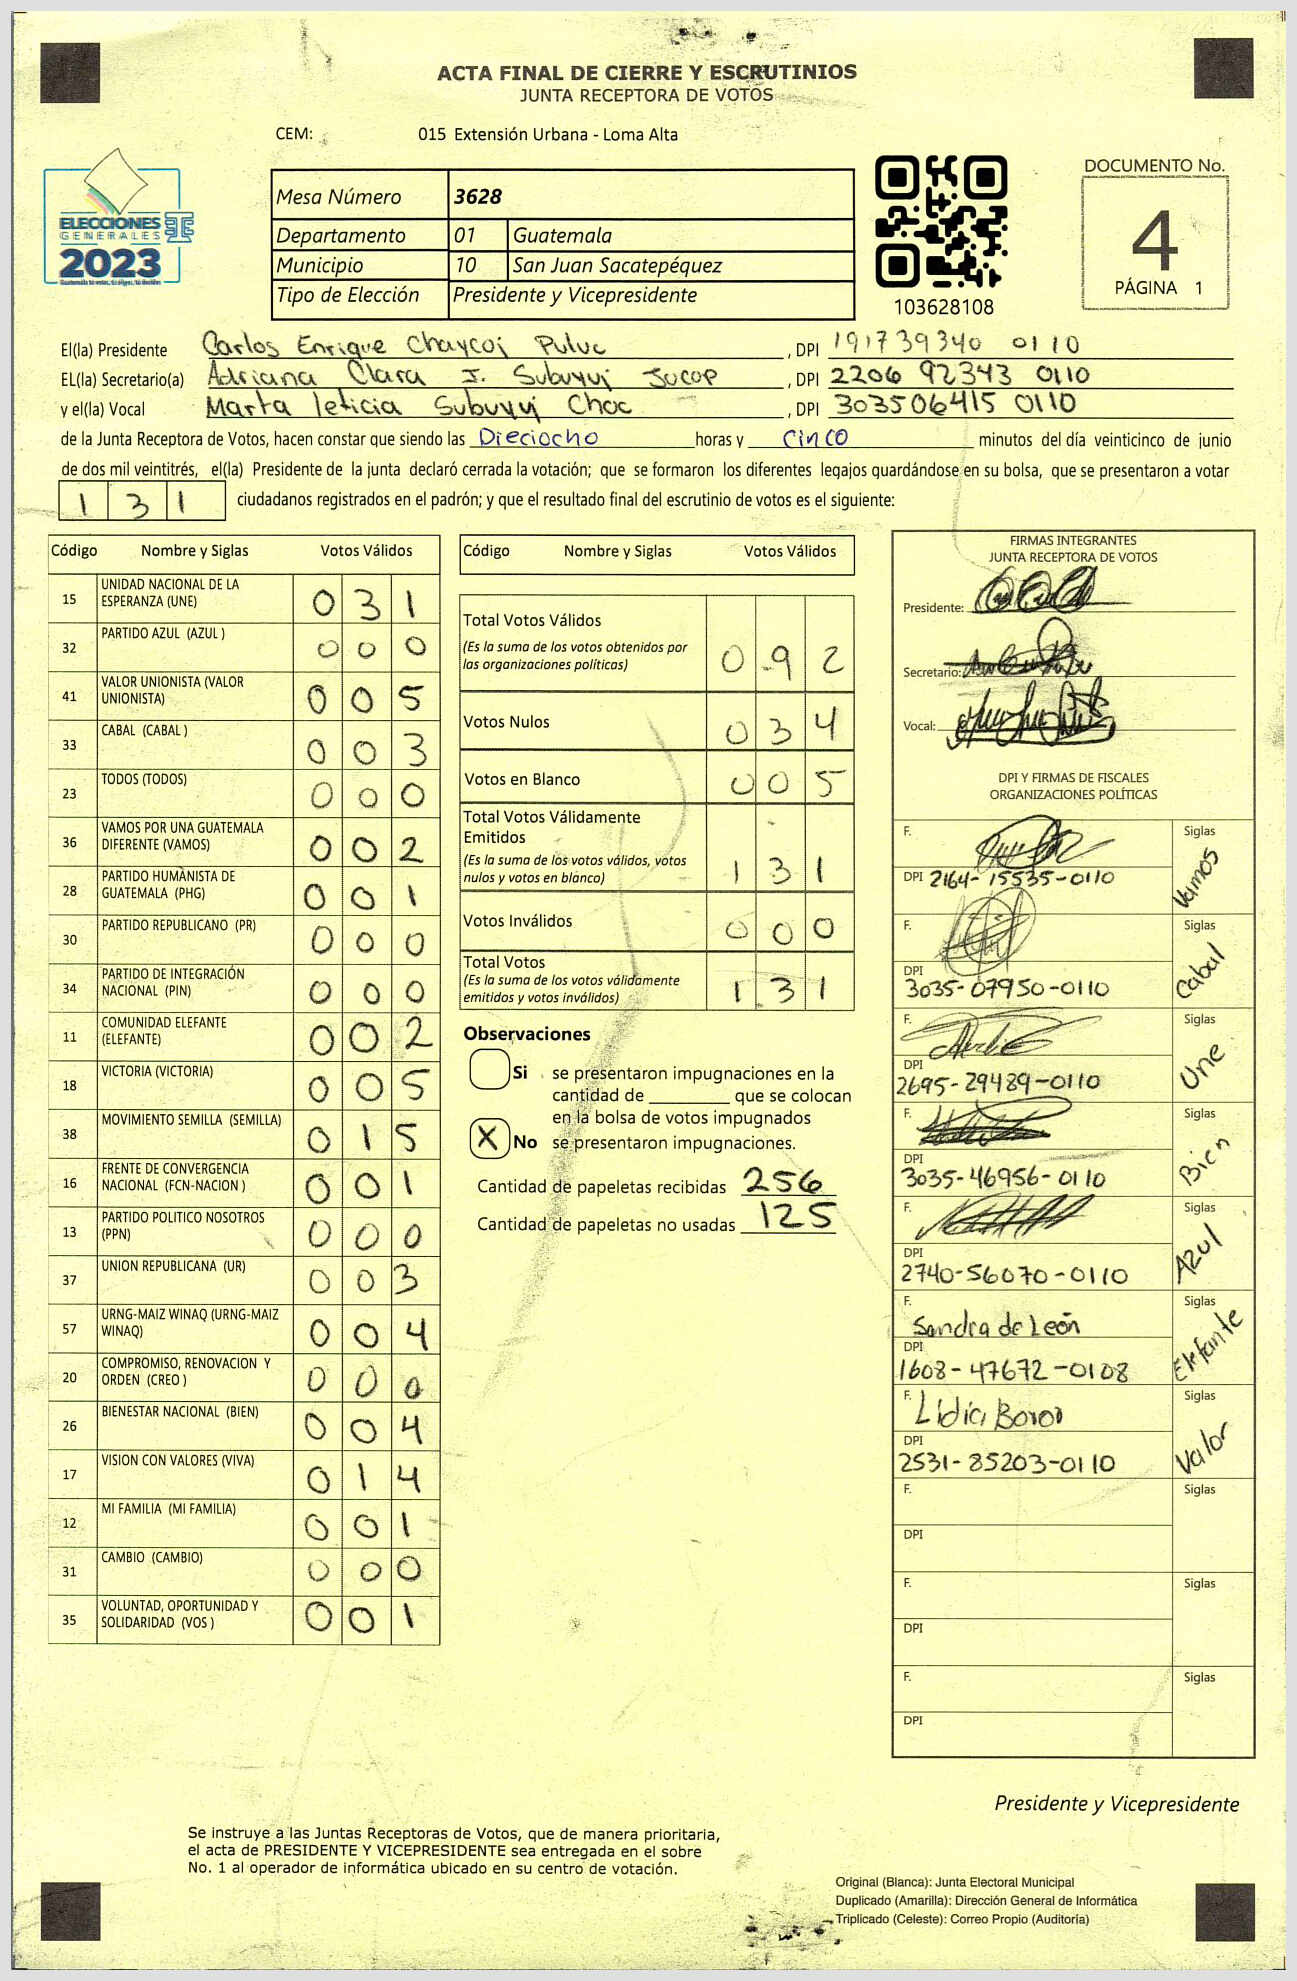 ACTA FINAL DE CIERRE Y ESCRUTINIOS
JUNTA RECEPTORA DE VOTOS
CEM: 015 Extensión Urbana - Loma Alta
ELECCIONES
GENERALES
2023
Mesa Número 3628
Departamento 01 Guatemala
Municipio 10 San Juan Sacatepéquez
Tipo de Elección Presidente y Vicepresidente
103628108
DOCUMENTO No.
4
PÁGINA 1
El(la) Presidente Carlos Enrique Chaycoj Puluc, DPI 191739340 0110
EL(la) Secretario(a) Adriana Clara J. Subuyuj Jocop, DPI 2206 92343 0110
y el(la) Vocal Marta leticia Subuyuj Choc, DPI 303506415 0110
de la Junta Receptora de Votos, hacen constar que siendo las Dieciocho horas y cinco minutos del día veinticinco de junio
de dos mil veintitrés, el(la) Presidente de la junta declaró cerrada la votación; que se formaron los diferentes legajos guardándose en su bolsa, que se presentaron a votar
1 3 1 ciudadanos registrados en el padrón; y que el resultado final del escrutinio de votos es el siguiente:
Código Nombre y Siglas Votos Válidos
15 UNIDAD NACIONAL DE LA ESPERANZA (UNE) 0 3 1
32 PARTIDO AZUL (AZUL ) 0 0 0
41 VALOR UNIONISTA (VALOR UNIONISTA) 0 0 5
33 CABAL (CABAL ) 0 0 3
23 TODOS (TODOS) 0 0 0
36 VAMOS POR UNA GUATEMALA DIFERENTE (VAMOS) 0 0 2
28 PARTIDO HUMANISTA DE GUATEMALA (PHG) 0 0 1
30 PARTIDO REPUBLICANO (PR) 0 0 0
34 PARTIDO DE INTEGRACIÓN NACIONAL (PIN) 0 0 0
11 COMUNIDAD ELEFANTE (ELEFANTE) 0 0 2
18 VICTORIA (VICTORIA) 0 0 5
38 MOVIMIENTO SEMILLA (SEMILLA) 0 1 5
16 FRENTE DE CONVERGENCIA NACIONAL (FCN-NACION ) 0 0 1
13 PARTIDO POLITICO NOSOTROS (PPN) 0 0 0
37 UNION REPUBLICANA (UR) 0 0 3
57 URNG-MAIZ WINAQ (URNG-MAIZ WINAQ) 0 0 4
20 COMPROMISO, RENOVACION Y ORDEN (CREO ) 0 0 0
26 BIENESTAR NACIONAL (BIEN) 0 0 4
17 VISION CON VALORES (VIVA) 0 1 4
12 MI FAMILIA (MI FAMILIA) 0 0 1
31 CAMBIO (CAMBIO) 0 0 0
35 VOLUNTAD, OPORTUNIDAD Y SOLIDARIDAD (VOS ) 0 0 1
Código Nombre y Siglas Votos Válidos
Total Votos Válidos
(Es la suma de los votos obtenidos por
las organizaciones políticas) 0 9 2
Votos Nulos 0 3 4
Votos en Blanco 0 0 5
Total Votos Válidamente
Emitidos
(Es la suma de los votos válidos, votos
nulos y votos en blanco) 1 3 1
Votos Inválidos 0 0 0
Total Votos
(Es la suma de los votos válidamente
emitidos y votos inválidos) 1 3 1
Observaciones
Si se presentaron impugnaciones en la
cantidad de ________ que se colocan
en la bolsa de votos impugnados
X No se presentaron impugnaciones.
Cantidad de papeletas recibidas 256
Cantidad de papeletas no usadas 125
FIRMAS INTEGRANTES
JUNTA RECEPTORA DE VOTOS
Presidente:
Secretario:
Vocal:
DPI Y FIRMAS DE FISCALES
ORGANIZACIONES POLÍTICAS
F. Siglas Vamos
DPI 2164-15535-0110
F. Siglas Cabal
DPI 3035-07950-0110
F. Siglas Une
DPI 2695-29489-0110
F. Siglas Bien
DPI 3035-46956-0110
F. Siglas Azul
DPI 2740-56070-0110
F. Sandra de León Siglas Elefante
DPI 1608-47672-0108
F. Lidia Boror Siglas Valor
DPI 2531-85203-0110
F. Siglas
DPI
F. Siglas
DPI
F. Siglas
DPI
Presidente y Vicepresidente
Se instruye a las Juntas Receptoras de Votos, que de manera prioritaria,
el acta de PRESIDENTE Y VICEPRESIDENTE sea entregada en el sobre
No. 1 al operador de informática ubicado en su centro de votación.
Original (Blanca): Junta Electoral Municipal
Duplicado (Amarilla): Dirección General de Informática
Triplicado (Celeste): Correo Propio (Auditoría)